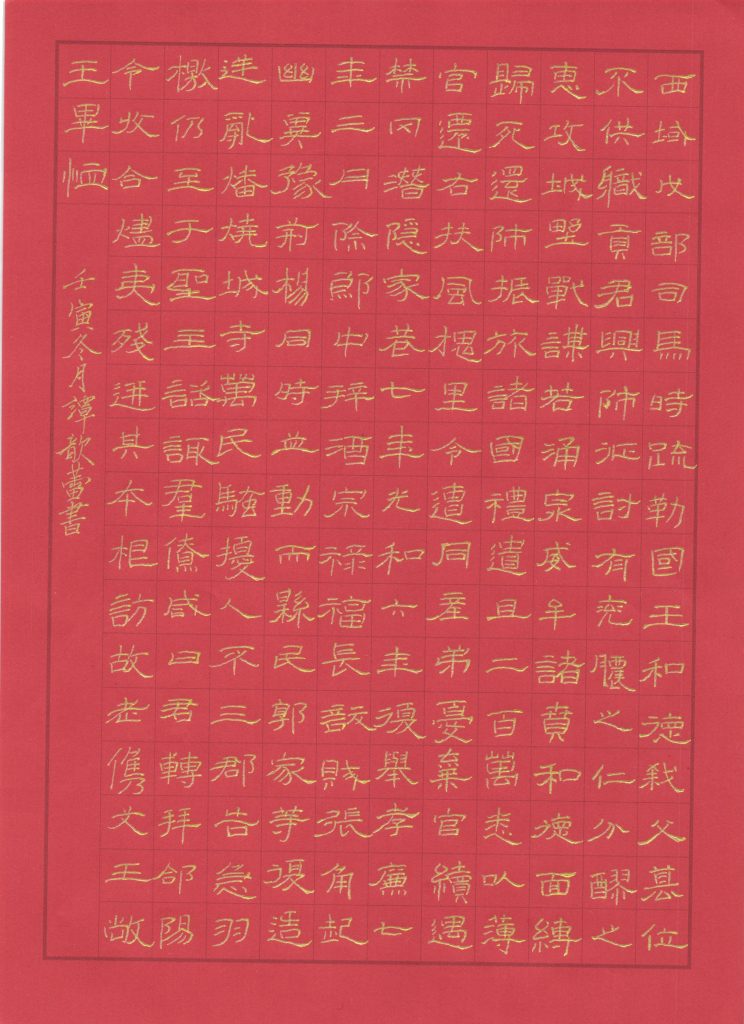 西域戊部司馬時疏勒國王和德弑父篡位
不供職貢君興師征討有兖膿之仁分醪之
惠攻城野戰謀若涌泉威牟諸賁和德面縛
歸死還師振旅諸國禮遺且二百萬悉以薄
官遷右扶風槐里令遭同產弟憂棄官續遇
禁冈潛隐家巷七年光和六年復舉孝廉七
年三月除郎中拜酒宗祿福長訞賊張角起
幽冀豫荆楊同時並動而縣民郭家等復造
逆亂燔燒城寺萬民騷擾人不三郡告急羽
檄仍至于聖主諮諏羣僚咸曰君轉拜郃陽
令收合燼夷殘迸其本根訪故老儁艾王敞
王畢恤
壬寅冬月譚歆蕾書